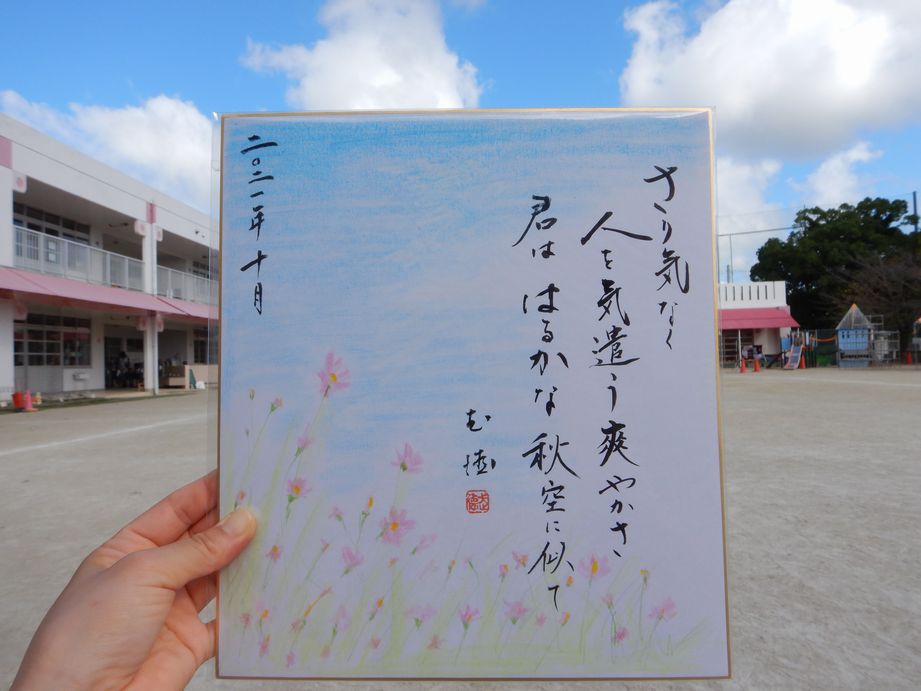 さり気なく
人を気遣う爽やかさ、
君ははるかな秋空に似て
二〇二一年十月